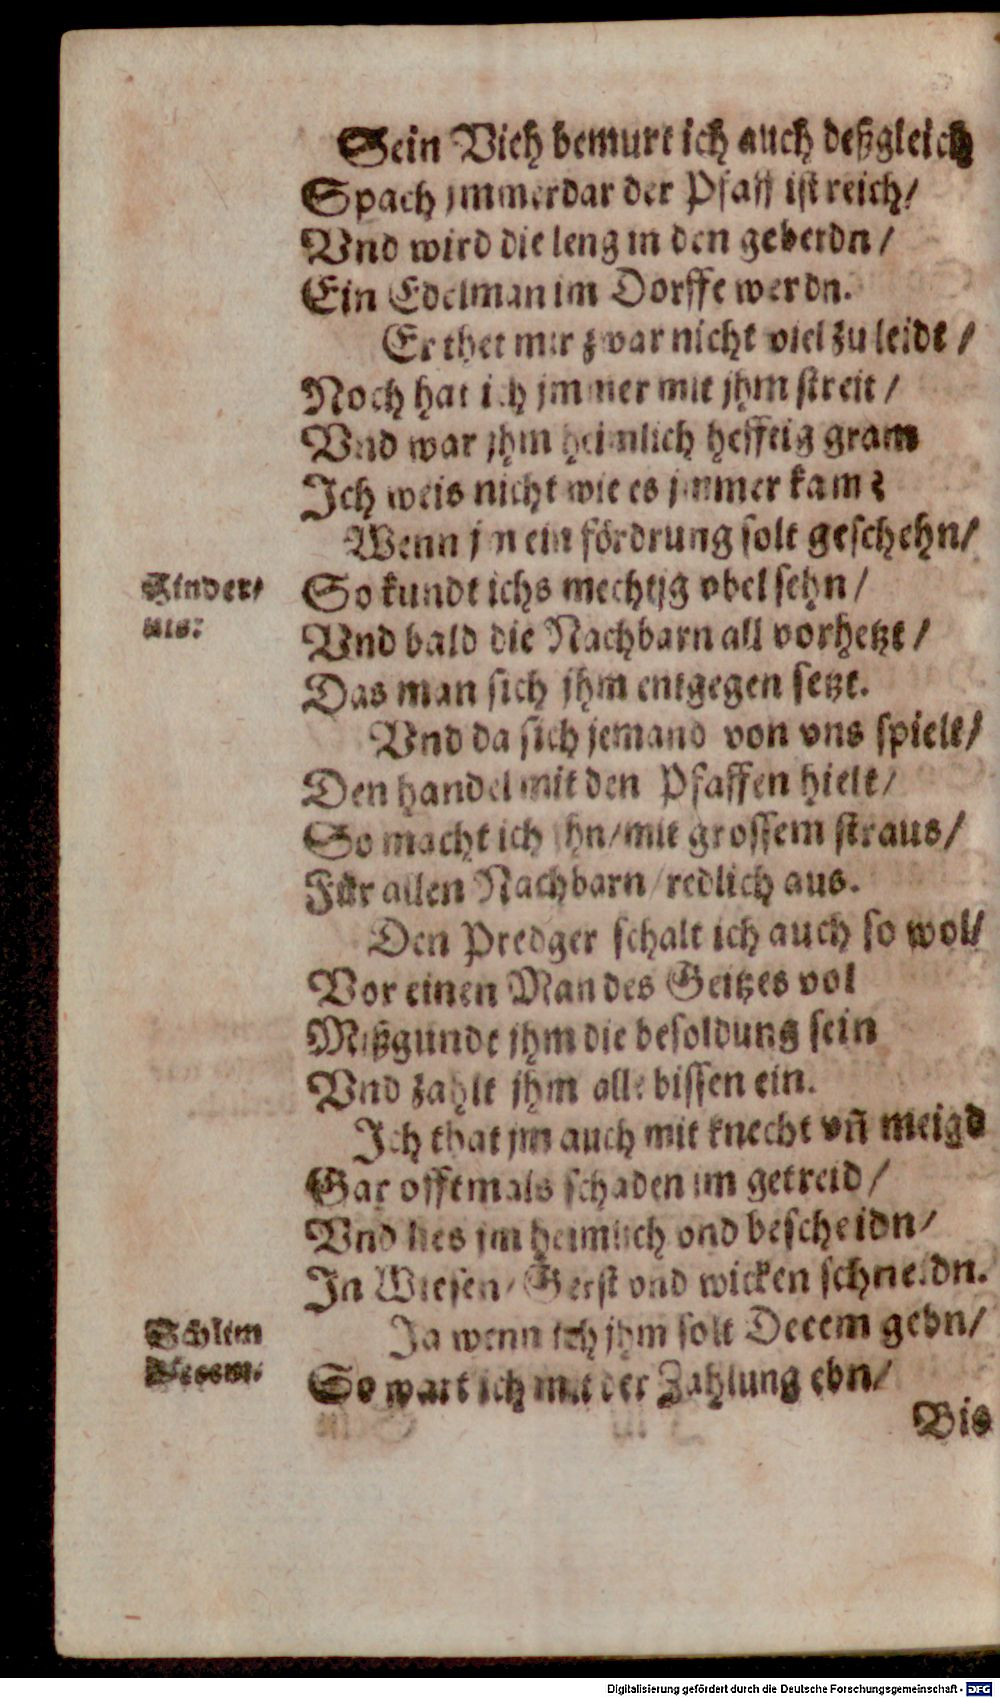 Sein Vieh bemurt ich auch deßgleich
Spach jmmerdar der Pfaff ist reich/
Vnd wird die leng in den geberdn/
Ein Edelman im Dorffe werdn.
Er thet mir zwar nicht viel zu leidt/
Noch hat ich jmmer mit jhm streit/
Vnd war jhm heimlich hefftig gram
Ich weis nicht wie es jmmer kam?
Wenn jm ein fördrung solt geschehn/
So kundt ichs mechtig vbel sehn/
Vnd bald die Nachbarn all vorhetzt/
Das man sich jhm entgegen setzt.
Vnd da sich jemand von vns spielt/
Den handel mit den Pfaffen hielt/
So macht ich jhn/mit grossem straus/
Für allen Nachbarn/redlich aus.
Den Predger schalt ich auch so wol/
Vor einen Man des Geitzes vol
Mißgundt jhm die besoldung sein
Vnd zahlt jhm alle bissen ein.
Ich that jm auch mit knecht vñ meigd
Gar offtmals schaden im getreid/
Vnd lies jm heimlich vnd bescheidn/
In Wiesen/Gerst vnd wicken schneidn.
Schlim
Ja wenn ich jhm solt Decem gebn/
Decem.
So wart ich mit der Zahlung ebn/
Bis
Digitalisierung gefördert durch die Deutsche Forschungsgemeinschaft - DFG